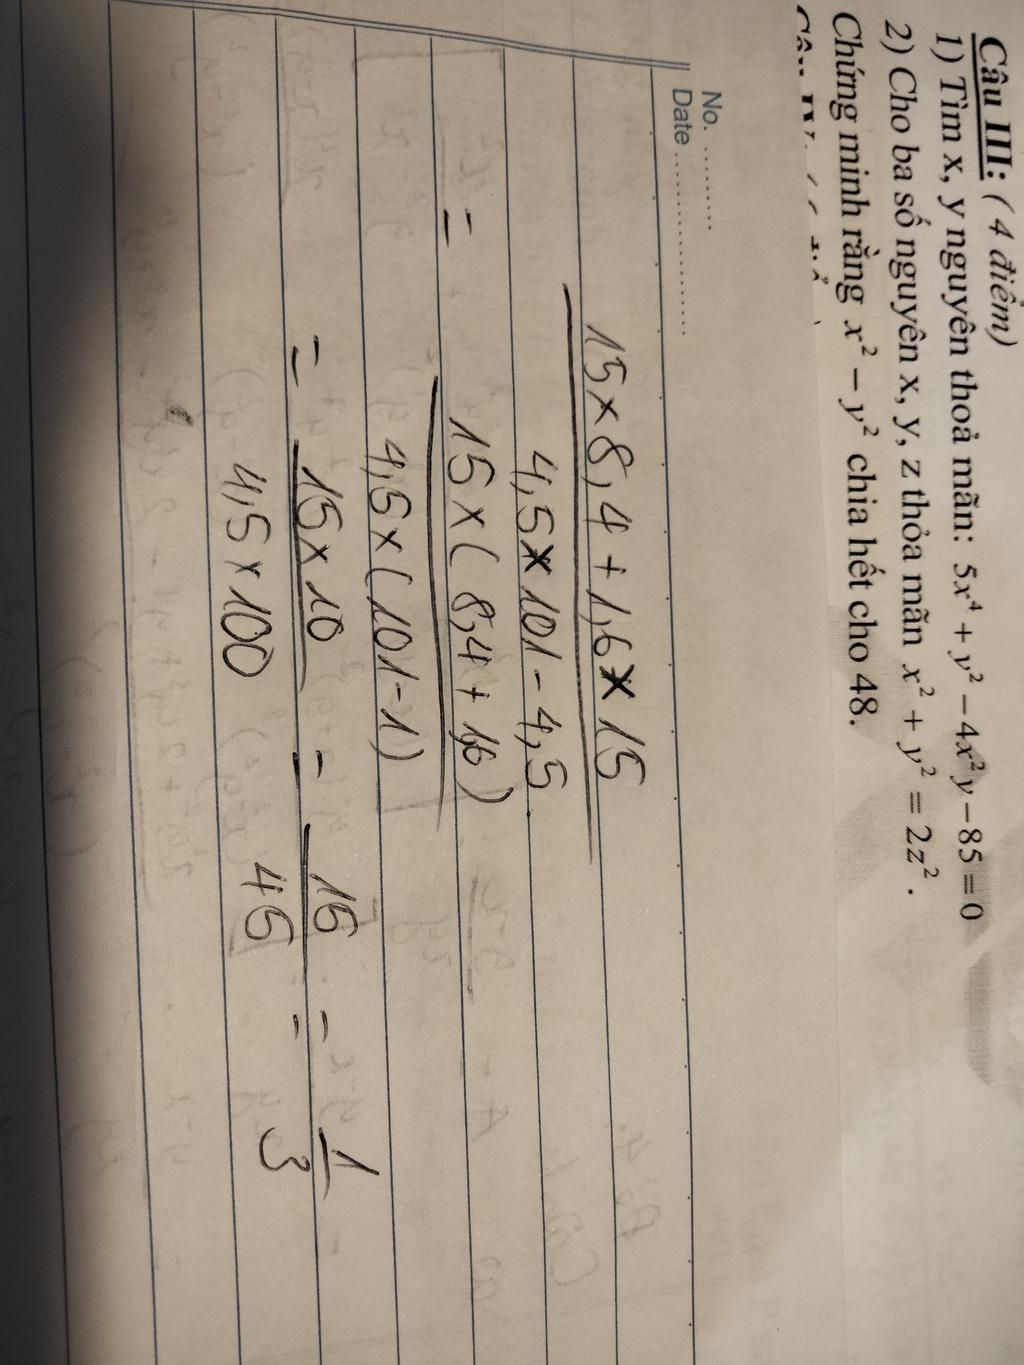 Câu III: ( 4 điểm)
1) Tìm x, y nguyên thoả mãn: 5x⁴ + y² – 4x²y – 85 = 0
2) Cho ba số nguyên x, y, z thỏa mãn x² + y² = 2z².
Chứng minh rằng x² – y² chia hết cho 48.
No. ..........
Date ....................
15 × 8,4 + 1,6 × 15
4,5 × 101 – 4,5
= 15 × ( 8,4 + 1,6 )
4,5 × ( 101 – 1 )
= 15 × 10 = 15 = 1
4,5 × 100 45 3